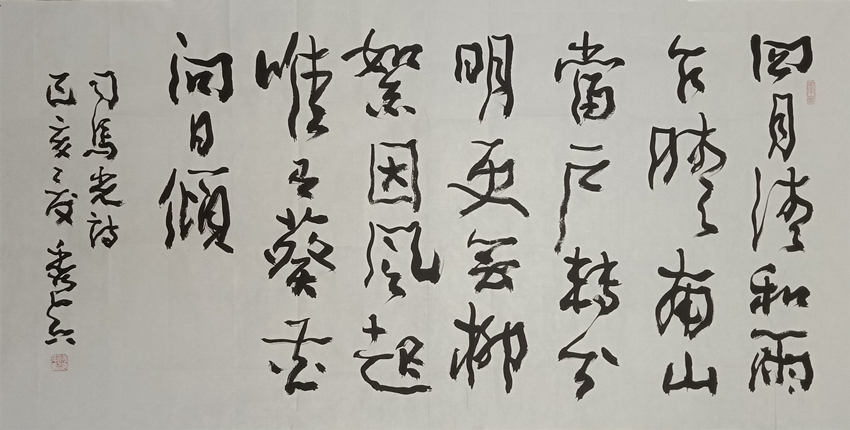 四月清和雨
乍晴南山
當戶轉分
明更無柳
絮因風起
惟有葵花
向日傾
司馬光詩
己亥之夏